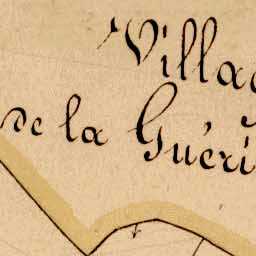 Villag
de la Guéri